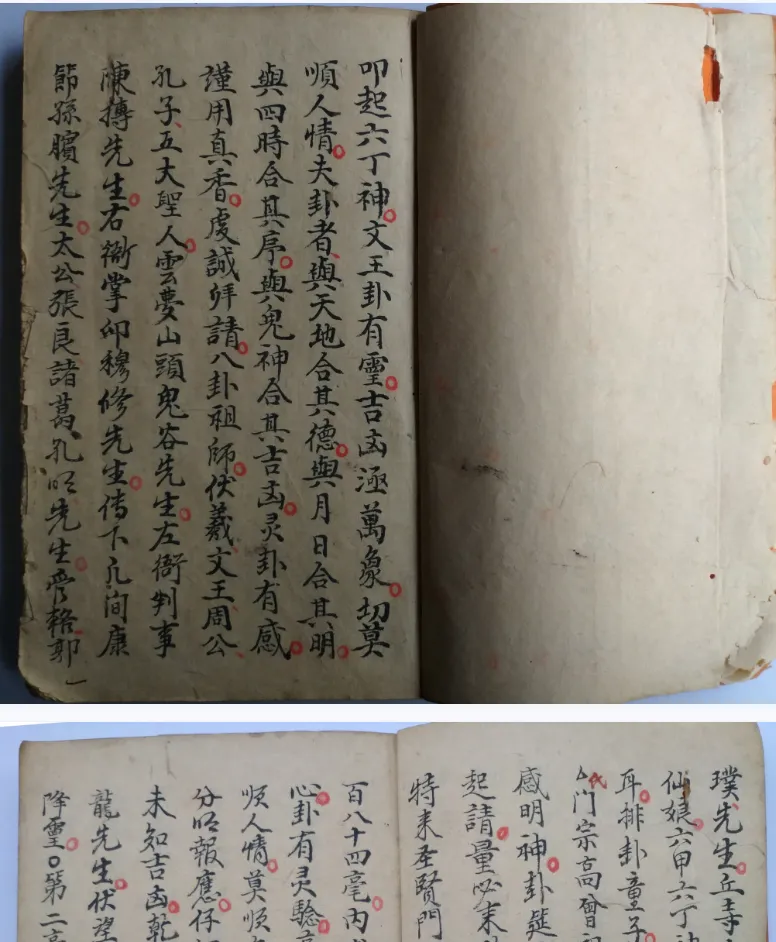 叩起六丁神文王卦有靈吉凶逕萬象切莫
順人情夫卦者與天地合其德與月日合其明
與四時合其序與鬼神合其吉凶灵卦有感
謹用真香虔誠拜請八卦祖師伏羲文王周公
孔子五大聖人雲夢山頭鬼谷先生左衙判事
陳摶先生右衙掌卯穆修先生傳下孔洞康
節孫臏先生太公張良諸葛孔明先生管輅郭
璞先生丘寺
仙娘六甲六丁神
耳排卦童子
門宗高曾祖
感明神卦筵
起請量必来
特来圣賢門
百八十四毫内
心卦有灵驗
順人情莫順
分明報應仔
未知吉凶乾
龍先生伏望
降靈第二